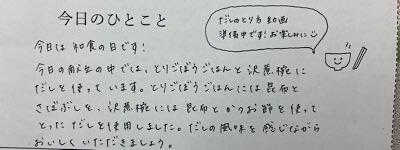 今日のひとこと
だしのとり方 動画
準備中です！お楽しみに
今日は 和食の日です！
今日の献立の中では、とりごぼうごはんと 沢煮椀に
だしを使って います。とりごぼうごはんには 昆布と
さばぶしを、沢煮椀には 昆布と かつお節を 使って
とった だしを使用しました。だしの風味を 感じながら
おいしく いただきましょう。